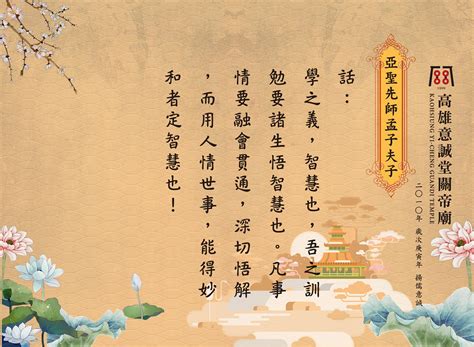 高雄意誠堂關帝廟
KAOHSIUNG YI-CHENG GUANDI TEMPLE
二〇一〇年 歲次庚寅年 揚儒意誠
亞聖先師孟子夫子
話：
學之義，智慧也，吾之訓
勉要諸生悟智慧也。凡事
情要融會貫通，深切悟解
，而用人情世事，能得妙
和者定智慧也！